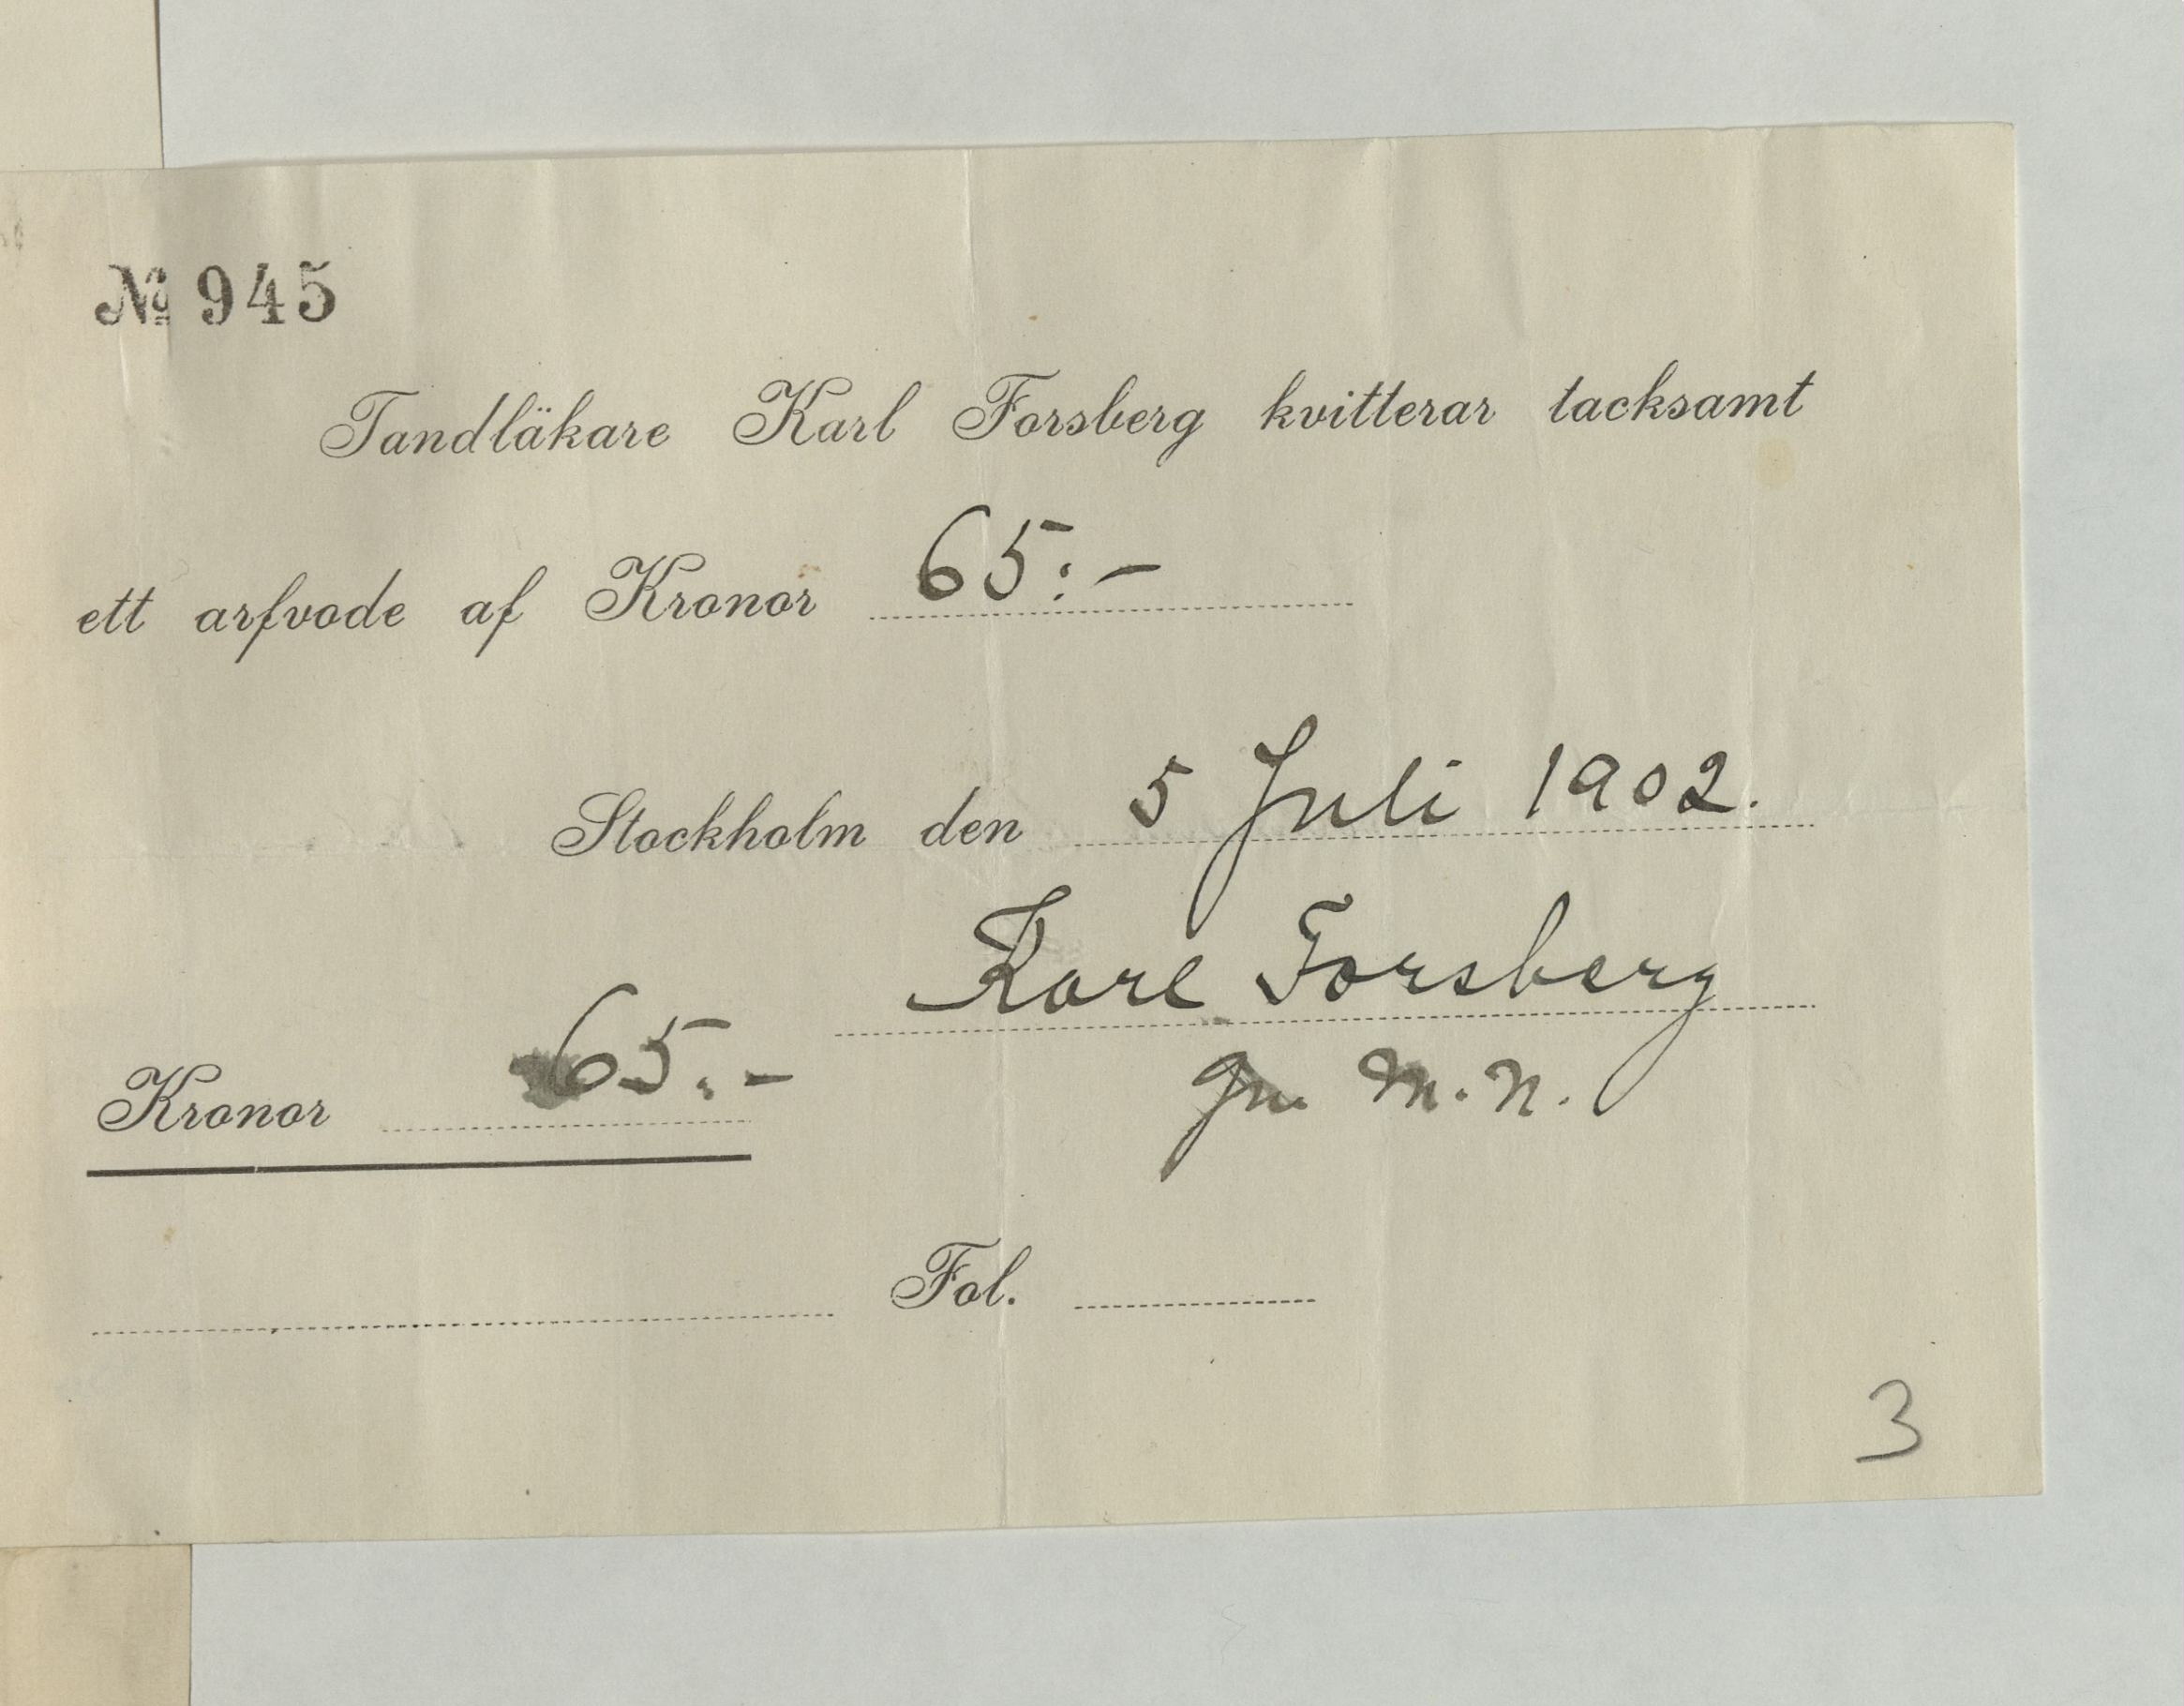 № 945
Tandläkare Karl Forsberg kvitterar tacksamt
ett arfvode af Kronor 65:-
Stockholm den 5 Juli 1902.
Karl Forsberg
Kronor 65:-
gm M. N.
Fol.
3